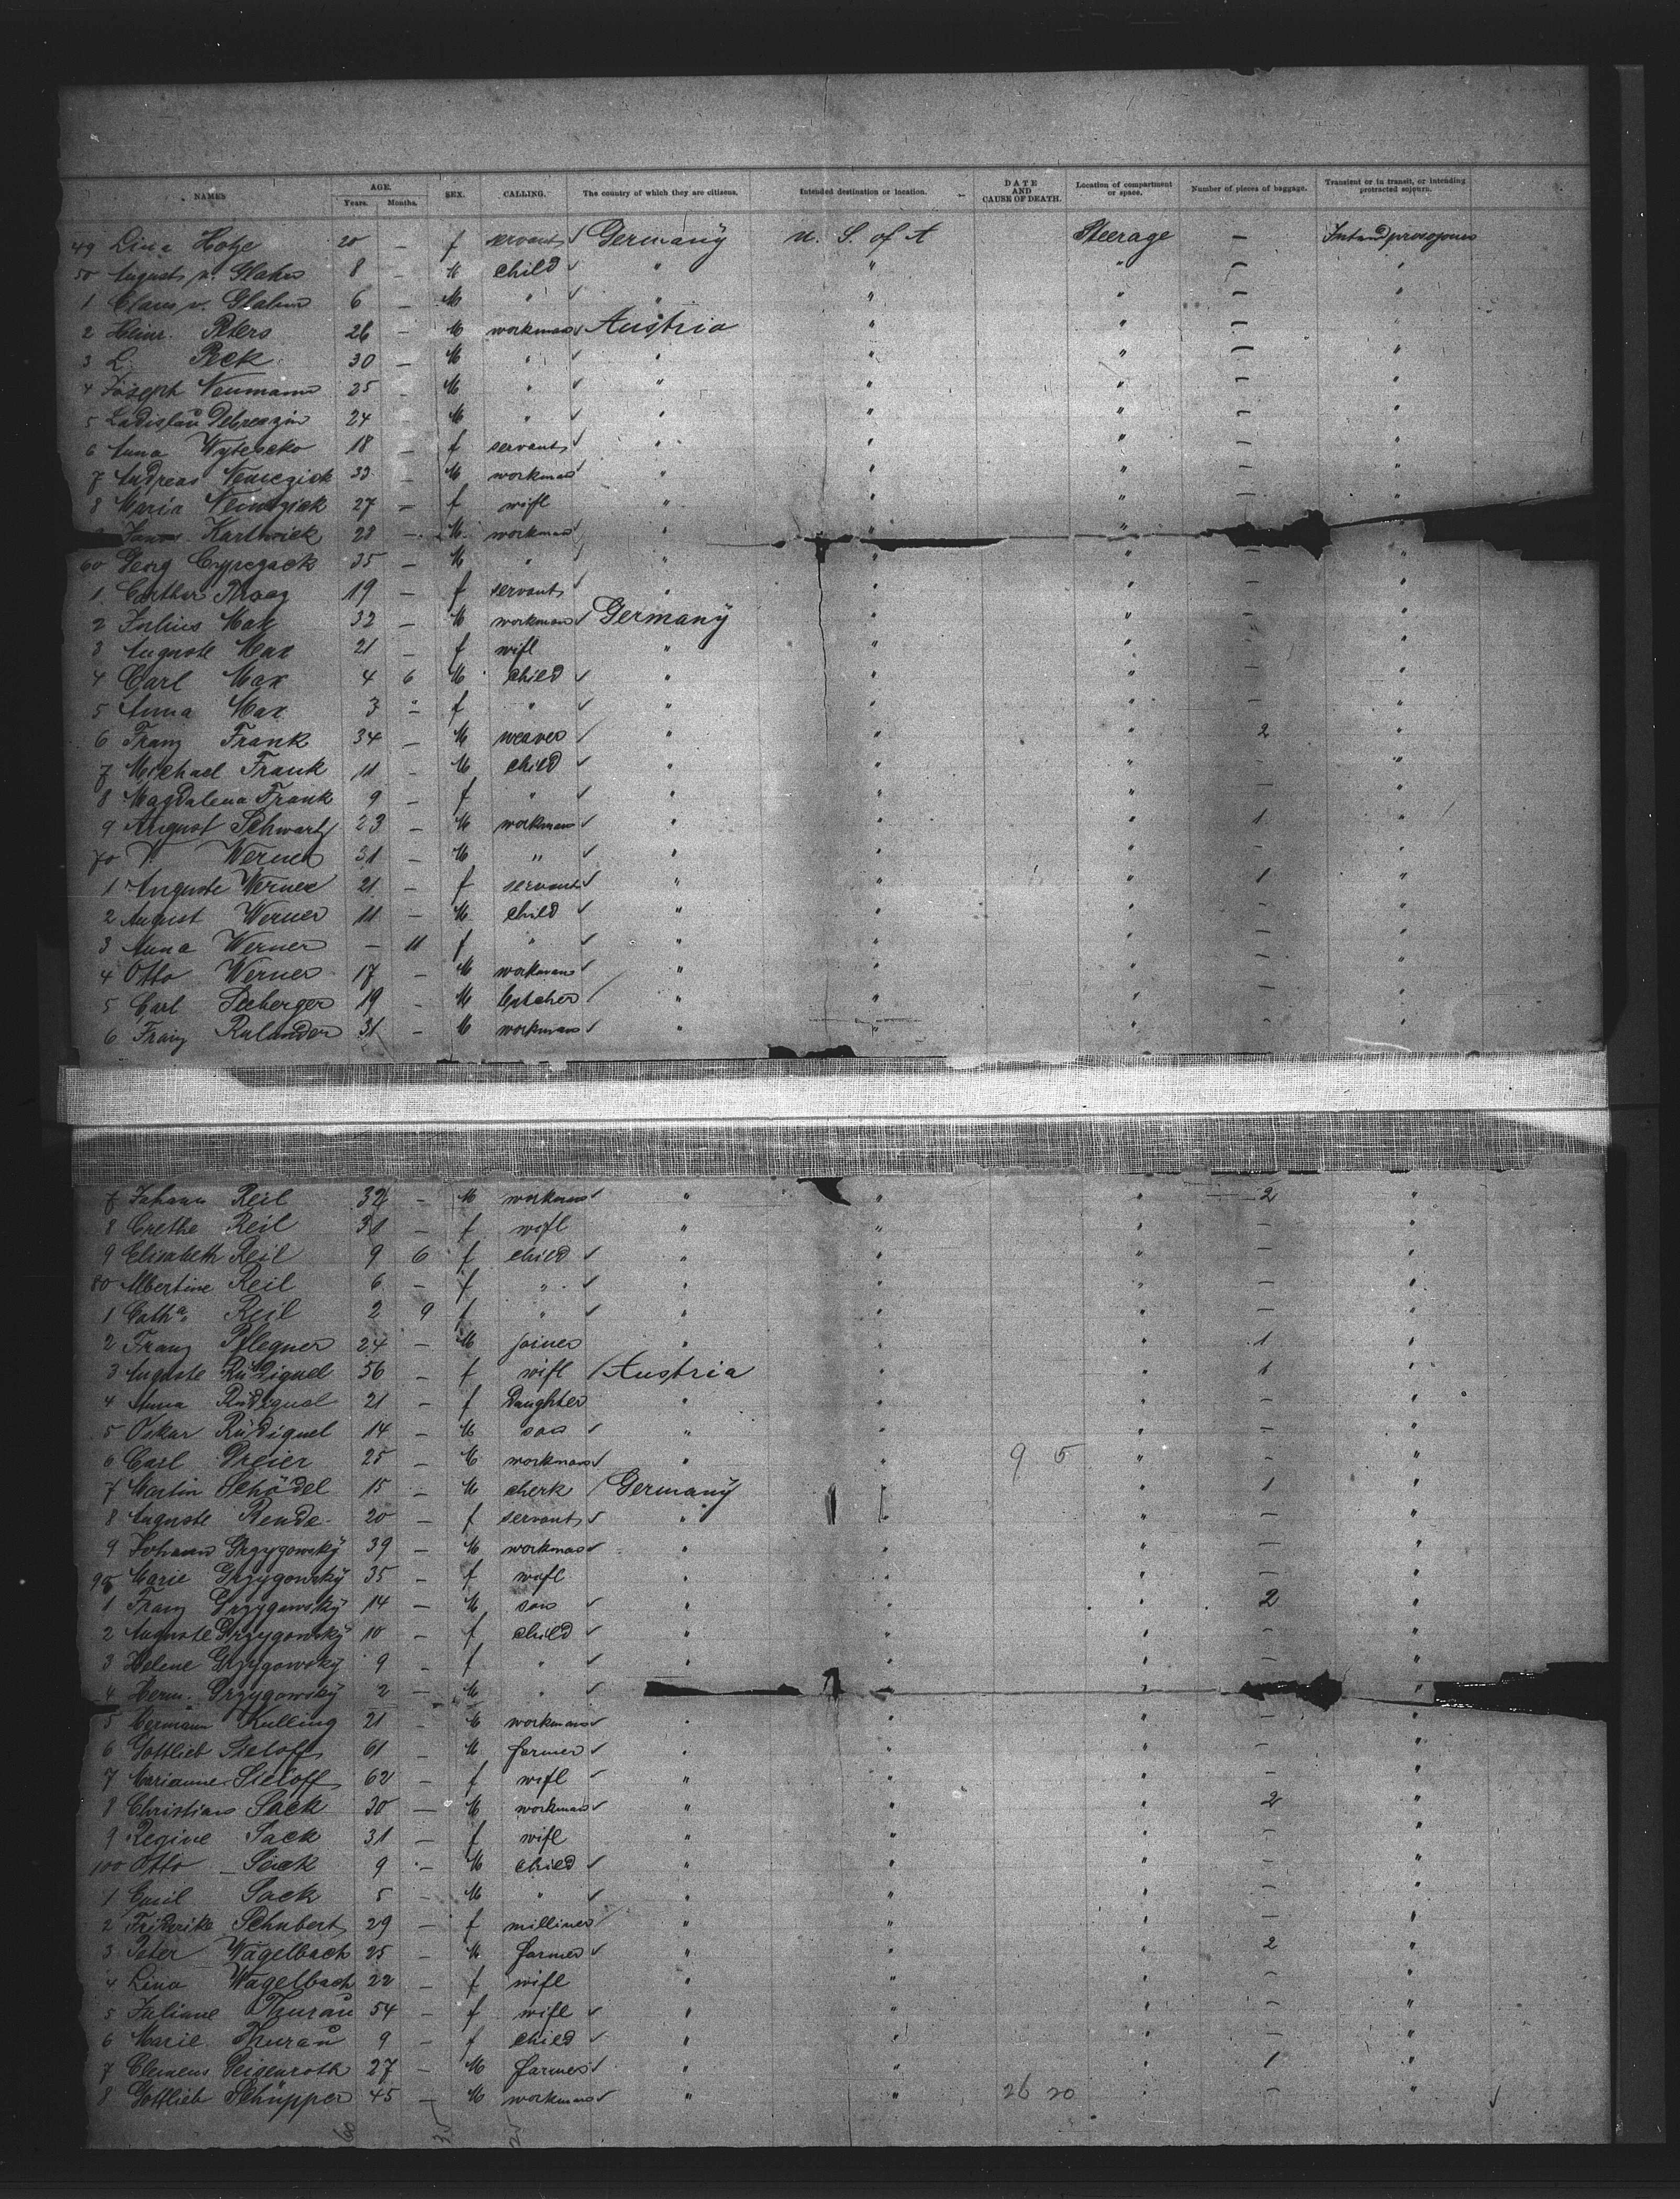 NAMES AGE. Years. Months. SEX. CALLING. The country of which they are citizens. Intended destination or location. DATE AND CAUSE OF DEATH. Location of compartment or space. Number of pieces of baggage. Transient or in transit, or intending protracted sojourn.
49 Lina 20 — f servant ✓ Germany U. S. of A Steerage —
50 8 — M child ✓ " " " — "
1 Claus v. 6 — M " ✓ " " " — "
2 Heinr. Peters 26 — M workman ✓ Austria " " — "
3 L. Peck 30 — M " ✓ " " " — "
4 Joseph Neumann 25 — M " ✓ " " " — "
5 Ladislau 24 — M " ✓ " " " — "
6 Anna 18 — f servant ✓ " " " — "
7 Andreas 33 — M workman ✓ " " " — "
8 Maria 27 — f wife " " " — "
28 — M workman ✓ " " " "
60 Georg 35 — M " " " " — "
1 19 — f servant ✓ " " " — "
2 Julius Max 32 — M workman ✓ Germany " " — "
3 Auguste Max 21 — f wife " " " — "
4 Carl Max 4 6 M child ✓ " " " — "
5 Anna Max 3 — f " ✓ " " " — "
6 Franz Frank 34 — M weaver ✓ " " " 2 "
7 Michael Frank 11 — M child ✓ " " " — "
8 Magdalena Frank 9 — f " ✓ " " " — "
9 August Schwartz 23 — M workman ✓ " " " 1 "
70 Werner 31 — M " ✓ " " " — "
1 Auguste Werner 21 — f servant ✓ " " " 1 "
2 August Werner 11 — M child ✓ " " " — "
3 Anna Werner — 11 f " ✓ " " " — "
4 Otto Werner 17 — M workman ✓ " " " — "
5 Carl Seeberger 19 — M butcher ✓ " " " — "
6 Franz Rulander 31 — M workman ✓ " " " — "
7 Johann Reil 32 — M workman ✓ " " " 2 "
8 Grethe Reil 31 — f wife " " " — "
9 Elisabeth Reil 9 6 f child ✓ " " " — "
80 Albertine Reil 6 — f " ✓ " " " — "
1 Catha Reil 2 9 f " ✓ " " " — "
2 Franz Pflegner 24 — M joiner " " " 1 "
3 Auguste Rüdiguel 56 — f wife / Austria " " 1 "
4 Anna Rüdiguel 21 — f daughter " " " — "
5 Oskar Rüdiguel 14 — M son ✓ " " " — "
6 Carl Dreier 25 — M workman ✓ " " 9 5 " — "
7 Martin Schödel 15 — M clerk / Germany " 1 "
8 Auguste Rende 20 — f servant ✓ " " — "
9 Johann Grzygowsky 39 — M workman ✓ " " " — "
90 Marie Grzygowsky 35 — f wife " " " — "
1 Franz Grzygowsky 14 — M son ✓ " " " 2 "
2 Auguste Grzygowsky 10 — f child ✓ " " " — "
3 Helene Grzygowsky 9 — f " ✓ " " " — "
4 Herm. Grzygowsky 2 — M " ✓ " " "
5 Hermann Kulling 21 — M workman ✓ " " " — "
6 Gottlieb Sieloff 61 — M farmer ✓ " " " — "
7 Marianne Sieloff 62 — f wife ✓ " " " — "
8 Christian Sack 30 — M workman ✓ " " " 2 "
9 Regine Sack 31 — f wife " " " — "
100 Otto Sack 9 — M child ✓ " " " — "
1 Emil Sack 5 — M " ✓ " " " — "
2 Friderike Schubert 29 — f milliner ✓ " " " — "
3 Peter Wagelbach 25 — M farmer ✓ " " " 2 "
4 Lina Wagelbach 22 — f wife " " " — "
5 Juliane Thurau 54 — f wife ✓ " " " — "
6 Marie Thurau 9 — f child ✓ " " " — "
7 Clemens Seigenroth 27 — M farmer ✓ " " " 1 "
8 Gottlieb Schüpper 45 — M workman ✓ " " 26 20 " — " ✓